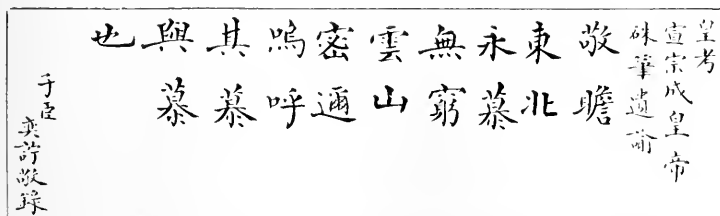 皇考
宣宗成皇帝
硃筆遺諭
敬瞻
東北
永慕
無窮
雲山
密邇
嗚呼
其慕
與慕
也
子臣
奕詝敬錄